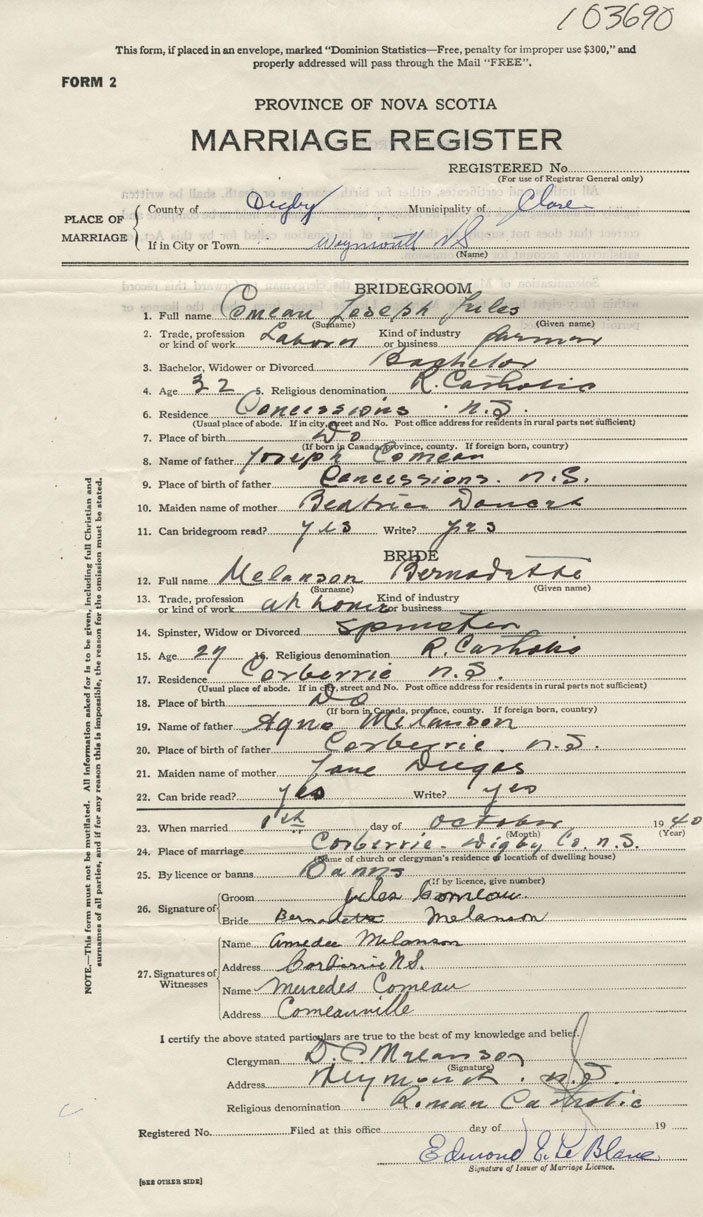 103690
This form, if placed in an envelope, marked "Dominion Statistics—Free, penalty for improper use $300," and
properly addressed will pass through the Mail "FREE".
FORM 2
PROVINCE OF NOVA SCOTIA
MARRIAGE REGISTER
REGISTERED No.
(For use of Registrar General only)
PLACE OF MARRIAGE
County of Digby Municipality of Clare
If in City or Town Weymouth NS
(Name)
BRIDEGROOM
1. Full name Comeau Joseph Jules
(Surname) (Given name)
2. Trade, profession or kind of work Laborer Kind of industry or business farmer
3. Bachelor, Widower or Divorced Bachelor
4. Age 32 5. Religious denomination R. Catholic
6. Residence Concessions N.S.
(Usual place of abode. If in city, street and No. Post office address for residents in rural parts not sufficient)
7. Place of birth Do
(If born in Canada, province, county. If foreign born, country)
8. Name of father Joseph Comeau
9. Place of birth of father Concessions. N.S.
10. Maiden name of mother Beatrice
11. Can bridegroom read? yes Write? yes
BRIDE
12. Full name Melanson Bernadette
(Surname) (Given name)
13. Trade, profession or kind of work at home Kind of industry or business
14. Spinster, Widow or Divorced Spinster
15. Age 27 16. Religious denomination R. Catholic
17. Residence Corberrie N.S.
(Usual place of abode. If in city, street and No. Post office address for residents in rural parts not sufficient)
18. Place of birth Do
(If born in Canada, province, county. If foreign born, country)
19. Name of father Melanson
20. Place of birth of father Corberrie. N.S.
21. Maiden name of mother Jane Dugas
22. Can bride read? yes Write? yes
23. When married day of October 1940
(Month) (Year)
24. Place of marriage Corberrie. Digby Co. N.S.
(Name of church or clergyman's residence or location of dwelling house)
25. By licence or banns Banns
(If by licence, give number)
26. Signature of
Groom Jules Comeau
Bride Bernadette Melanson
27. Signatures of Witnesses
Name Amedee Melanson
Address Corberrie N.S.
Name Mercedes Comeau
Address Comeauville
I certify the above stated particulars are true to the best of my knowledge and belief.
Clergyman D. C. Melanson
(Signature)
Address Weymouth. N.S.
Religious denomination Roman Catholic
Registered No. Filed at this office day of 19
Edmond E. Le Blanc
Signature of Issuer of Marriage Licence.
[SEE OTHER SIDE]
NOTE.—This form must not be mutilated. All information asked for is to be given, including full Christian and
surnames of all parties, and if for any reason this is impossible, the reason for the omission must be stated.